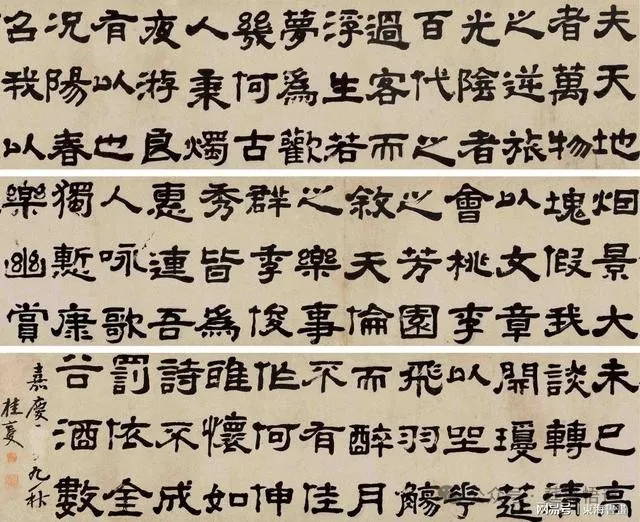 夫天地
者萬物
之逆旅
光陰者
百代之
過客而
浮生若
夢爲歡
幾何古
人秉燭
夜游良
有以也
況陽春
召我以
烟景大
塊假我
以文章
會桃李
之芳園
敘天倫
之樂事
群季俊
秀皆爲
惠連吾
人咏歌
獨慙康
樂幽賞
未已高
談轉清
開瓊筵
以坐華
飛羽觴
而醉月
不有佳
作何伸
雅懷如
詩不成
罰依金
谷酒數
嘉慶九秋
桂馥
公众号